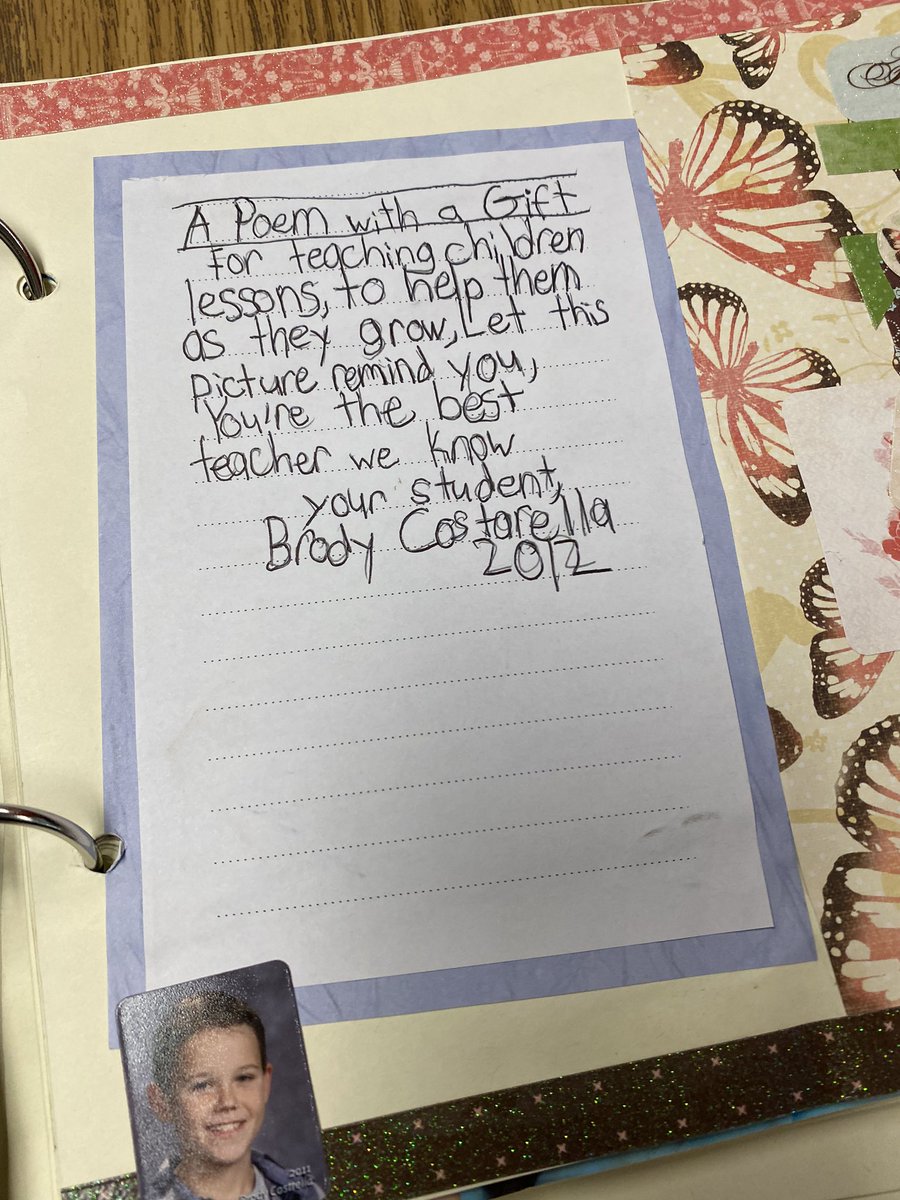 A Poem with a Gift
For teaching children
lessons, to help them
as they grow, Let this
picture remind you,
You're the best
teacher we know
your student,
Brody Costarella
2012
2011